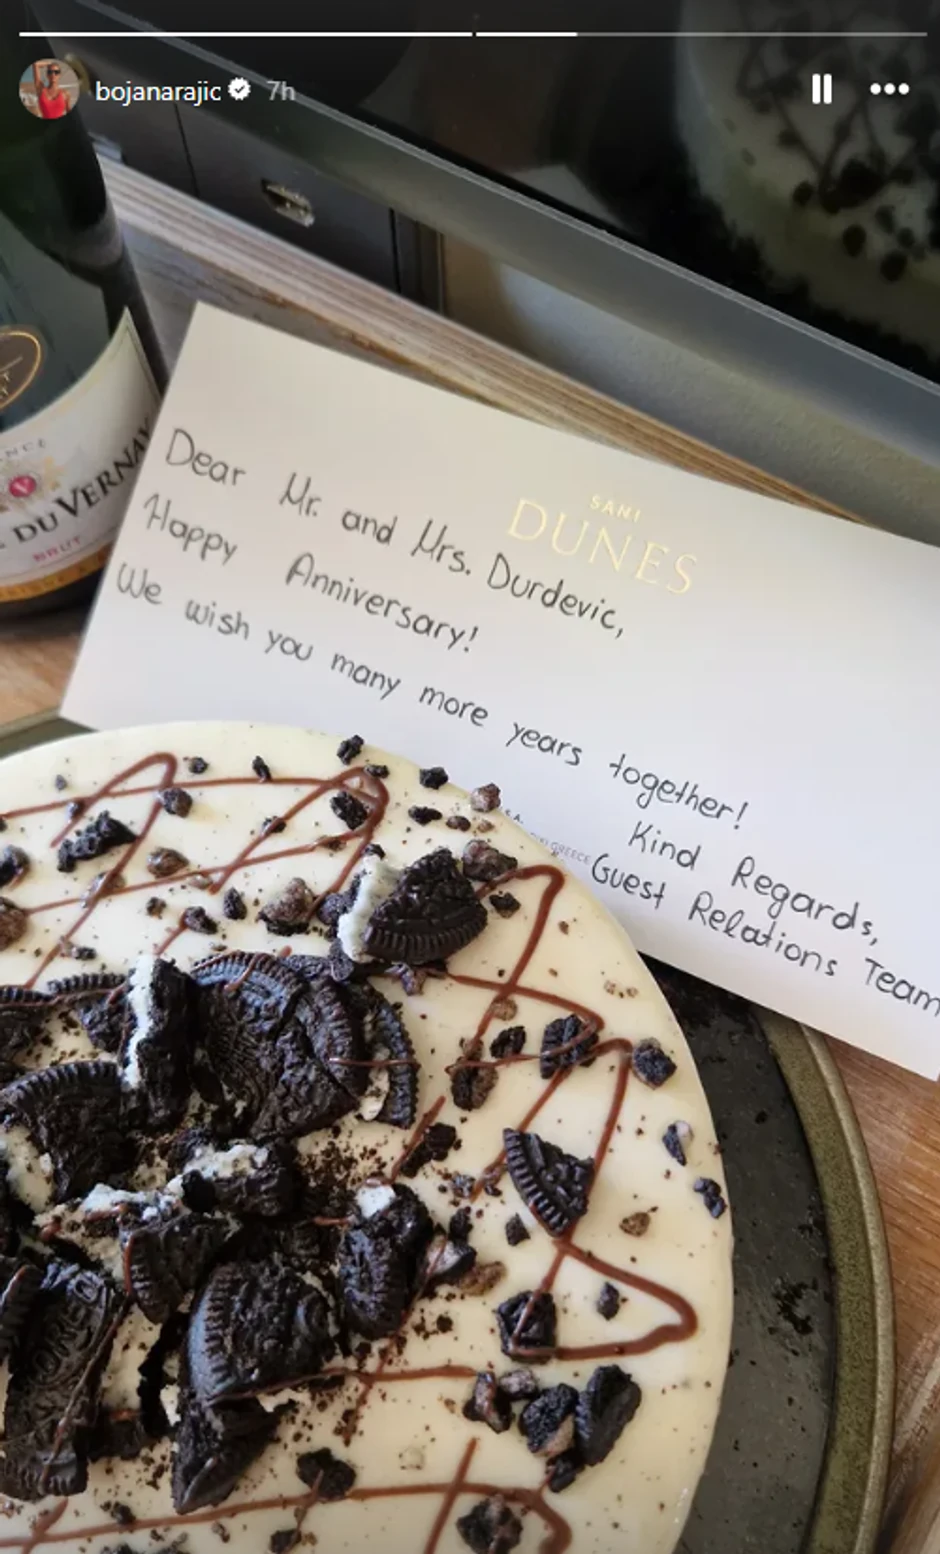 bojanarajic 7h
SANI
DUNES
Dear Mr. and Mrs. Durdevic,
Happy Anniversary!
We wish you many more years together!
Kind Regards,
Guest Relations Team
GREECE
DU VERNAY
BRUT